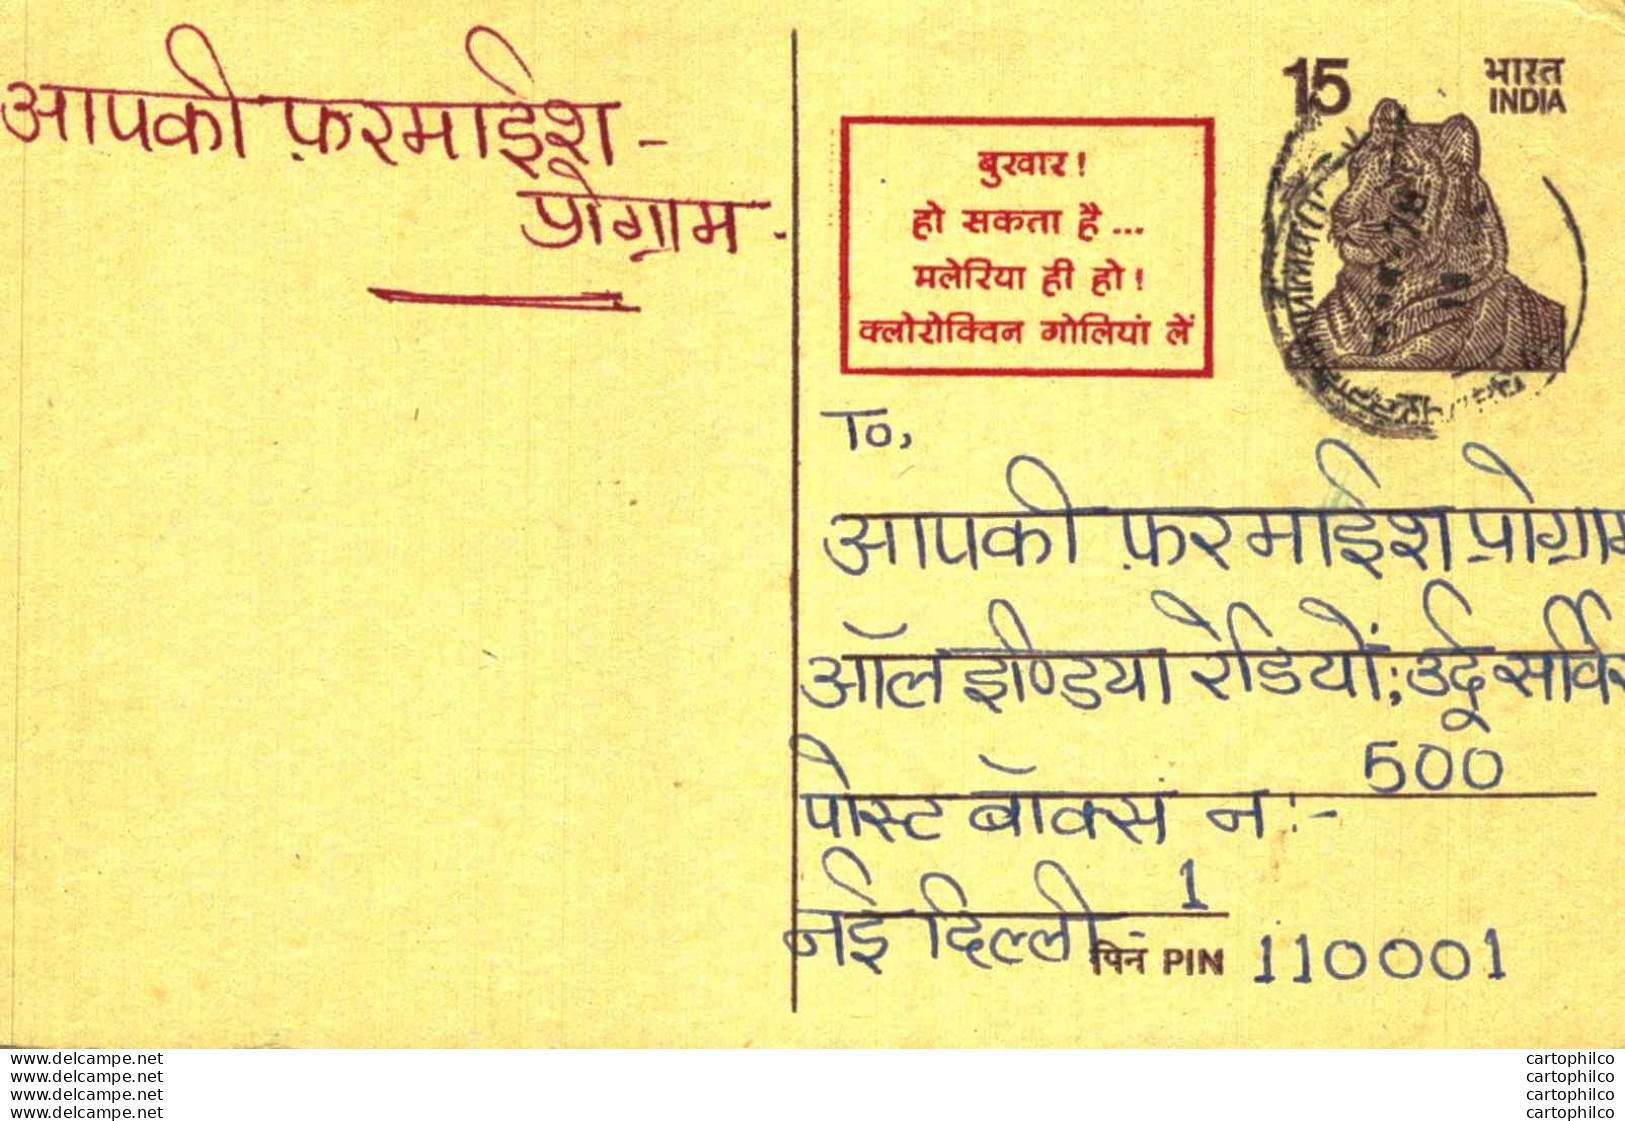 आपकी फ़रमाईश -
प्रोग्राम -
15
भारत
INDIA
बुखार !
हो सकता है ...
मलेरिया ही हो !
क्लोरोक्विन गोलियां लें
To,
आपकी फ़रमाईश प्रोग्राम
ऑल इण्डिया रेडियों; उर्दू सर्विस
पोस्ट बॉक्स नं :- 500
नई दिल्ली - 1
पिन PIN 110001
www.delcampe.net
www.delcampe.net
www.delcampe.net
www.delcampe.net
cartophilco
cartophilco
cartophilco
cartophilco